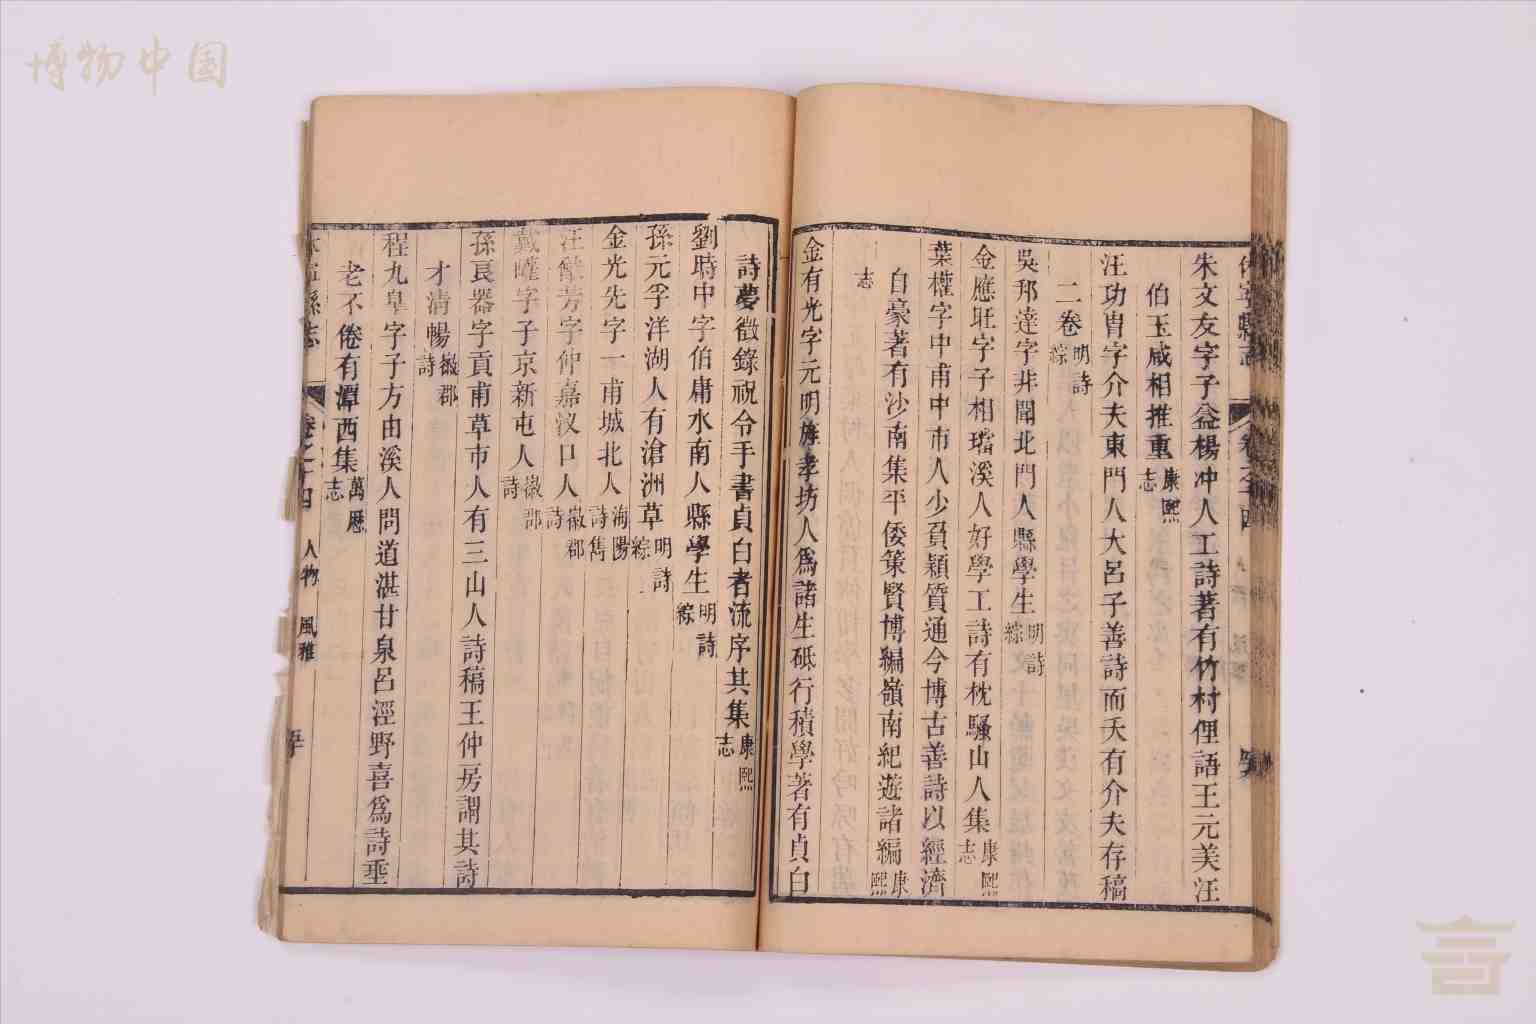 博物中国
朱文友字子益楊冲人工詩著有竹村俚語王元美汪
伯玉咸相推重康熙志
汪功胄字介夫東門人大呂子善詩而夭有介夫存稿
二卷明詩綜
吳邦達字非聞北門人縣學生明詩綜
金應旺字子相璫溪人好學工詩有枕騷山人集康熙志
葉權字中甫中市人少負穎質通今博古善詩以經濟
自豪著有沙南集平倭策賢博編嶺南紀遊諸編康熙
志
金有光字元明旌孝坊人爲諸生砥行積學著有貞白
詩夢徵錄祝令手書貞白者流序其集康熙志
劉時中字伯庸水南人縣學生明詩綜
孫元孚洋湖人有滄洲草明詩綜
金光先字一甫城北人海陽詩雋
汪 芳字仲嘉汊口人徽郡詩
戴 字子京新屯人徽郡詩
孫良器字貢甫草市人有三山人詩稿王仲房謂其詩
才清暢徽郡詩
程九皐字子方由溪人問道湛甘泉呂涇野喜爲詩垂
老不倦有潭西集萬厯志
縣志 卷之十四 人物 風雅